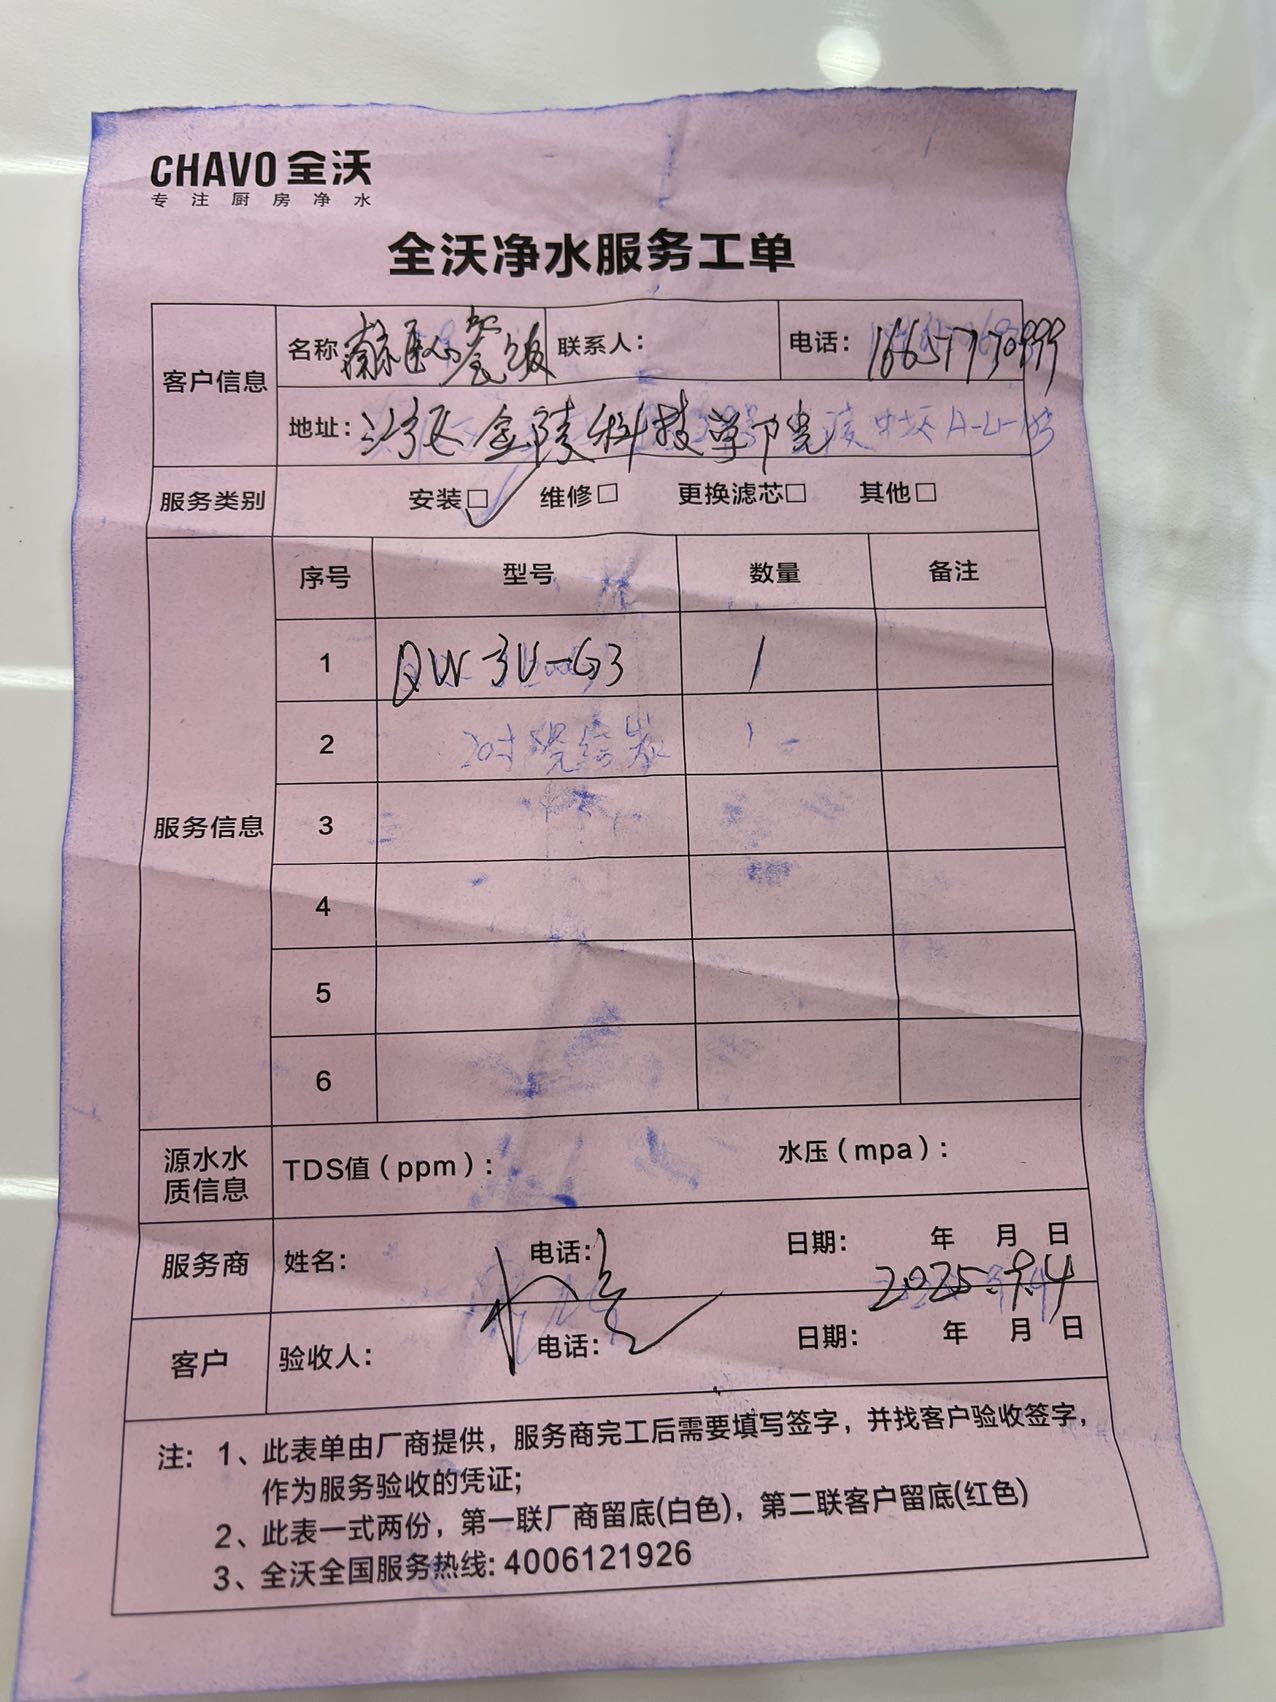 CHAVO 全沃
专注厨房净水
全沃净水服务工单
客户信息
名称
联系人：
电话：
地址： 金陵科技学院
服务类别 安装☑ 维修□ 更换滤芯□ 其他□
服务信息
序号 型号 数量 备注
1 QW-3U-G3 1
2 20寸烧结炭 1
3
4
5
6
源水水质信息 TDS值（ppm）： 水压（mpa）：
服务商 姓名： 电话： 日期： 年 月 日
2025.9.4
客户 验收人： 电话： 日期： 年 月 日
注：1、此表单由厂商提供，服务商完工后需要填写签字，并找客户验收签字，
作为服务验收的凭证；
2、此表一式两份，第一联厂商留底(白色)，第二联客户留底(红色)
3、全沃全国服务热线：4006121926